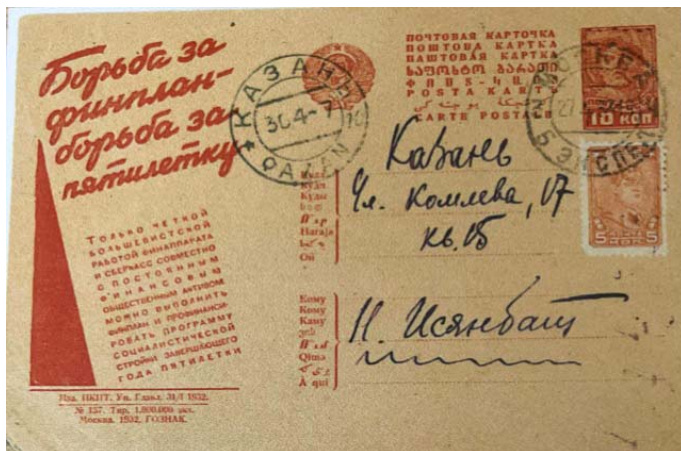 Борьба за
финплан-
борьба за
пятилетку
Только четкой
большевистской
работой финаппарата
и сберкасс совместно
с постоянным
финансовым
общественным активом
можно выполнить
финплан и профинанси-
ровать программу
социалистической
стройки завершающего
года пятилетки
Изд. НКПТ. Уп. Главл. 31/I 1932.
№ 157. Тир. 1.000.000 экз.
Москва. 1932. ГОЗНАК.
КАЗАНЬ
QAZAN
ПОЧТОВАЯ КАРТОЧКА
ПОШТОВА КАРТКА
ПАШТОВАЯ КАРТКА
ՓՈՍՏ-ՔԱՐՏ
POSTA KARTЬ
CARTE POSTALE
10 КОП
МОСКВА
5 ЭКСПЕД
5 КОП. 5
Куда
Куди
Куды
Haraja
Où
Казань
Ул. Комлева, 17
кв. 15
Кому
Кому
Каму
Qimə
À qui
Н. Исянбат